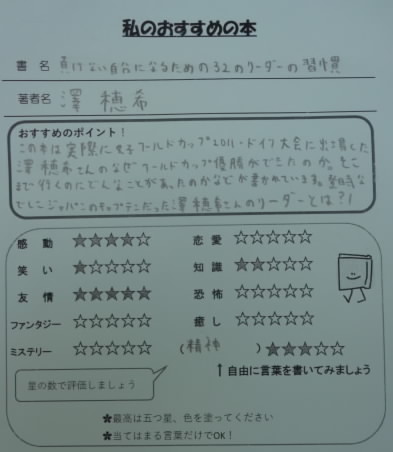 私のおすすめの本
書 名 負けない自分になるための32のリーダーの習慣
著者名 澤 穂希
おすすめのポイント！
この本は実際に女子ワールドカップ2011・ドイツ大会に出場した
澤穂希さんのなぜワールドカップ優勝ができたのか。そこ
まで行くのにどんなことがあったのかなどが書かれています。当時な
でしこジャパンのキャプテンだった澤穂希さんのリーダーとは？！
感 動 ★★★★☆ 恋 愛 ☆☆☆☆☆
笑 い ★☆☆☆☆ 知 識 ★★☆☆☆
友 情 ★★★★★ 恐 怖 ☆☆☆☆☆
ファンタジー ☆☆☆☆☆ 癒 し ☆☆☆☆☆
ミステリー ☆☆☆☆☆ (精神 )★★★☆☆
星の数で評価しましょう
↑自由に言葉を書いてみましょう
★最高は五つ星、色を塗ってください
★当てはまる言葉だけでOK！